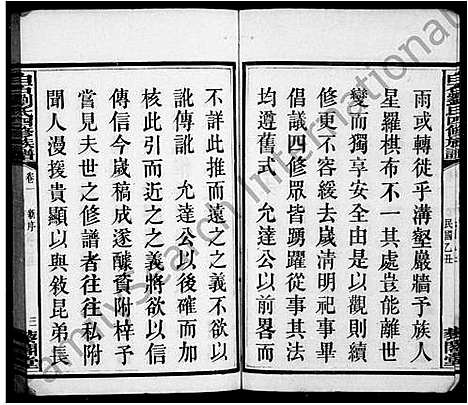 雨或轉徙乎溝壑嚴牆予族人
星羅棋布不一其處豈能離世
變而獨享安全由是以觀則續
修更不容緩去歲清明祀事畢
倡議四修眾皆踴躍從事其法
均遵舊式 允達公以前畧而
不詳此推而遠之之義不欲以
訛傳訛 允達公以後確而加
核此引而近之之義將欲以信
傳信今歲稿成遂釀資付梓工
嘗見夫世之修譜者往往私附
聞人漫援貴顯以與敘昆弟長
民國乙丑
白沙劉氏四修族譜
卷一 新序
三
FamilySearch International